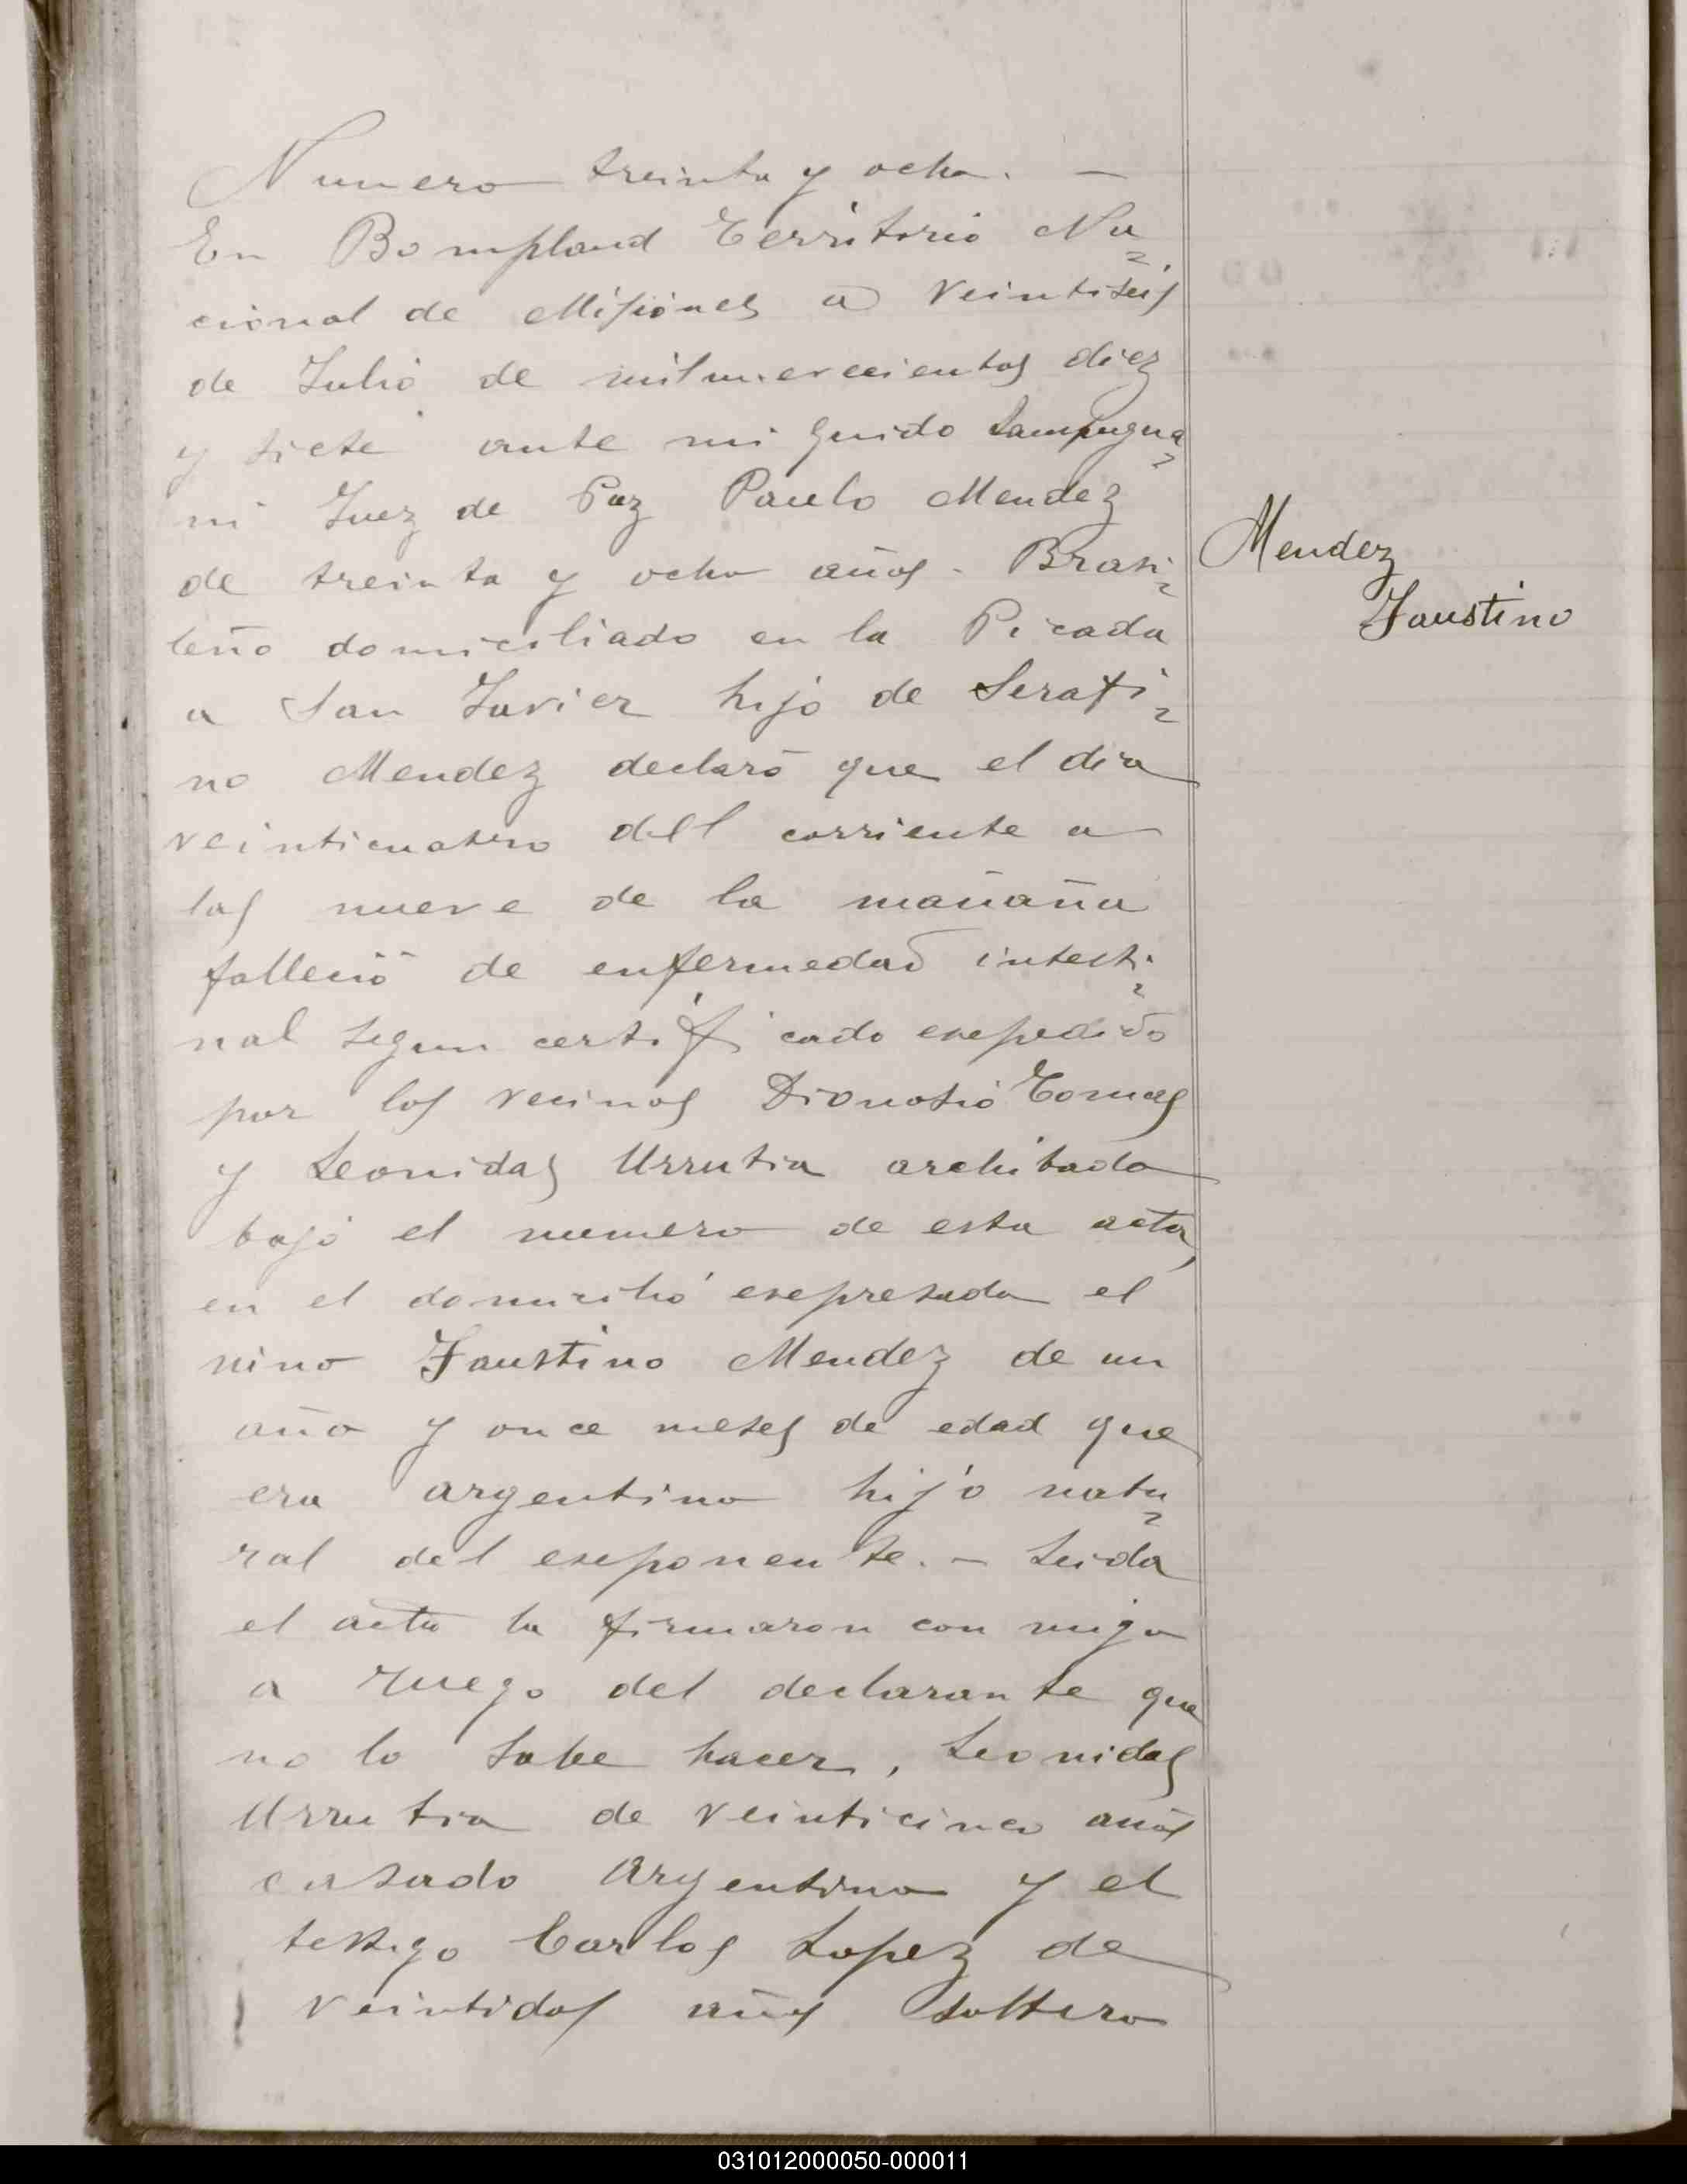 Numero treinta y ocho. —
En Bompland Territorio Na=
cional de Misiones a veintiseis
de Julio de milnuevecientos diez
y siete ante mi Guido Lampugna=
ni Juez de Paz Paulo Mendez
de treinta y ocho años. Brasi=
leño domiciliado en la Picada
a San Javier hijo de Serafi=
no Mendez declaró que el dia
veinticuatro dell corriente a
las nueve de la mañaña
falleció de enfermedad intesti=
nal segun certificado esepedido
por los vecinos Dionosio Tomas
y Leonidas Urrutia archibado
bajo el numero de esta acta,
en el domicilio esepresado el
nino Faustino Mendez de un
año y once meses de edad que
era argentino hijo natu=
ral del eseponente. — Leida
el acta la firmaron con migo
a ruego del declarante que
no lo sabe hacer, Leonidas
Urrutia de veinticinco años
casado Argentino y el
testigo Carlos Lopez de
veintidos años soltero
Mendez
Faustino
031012000050-000011